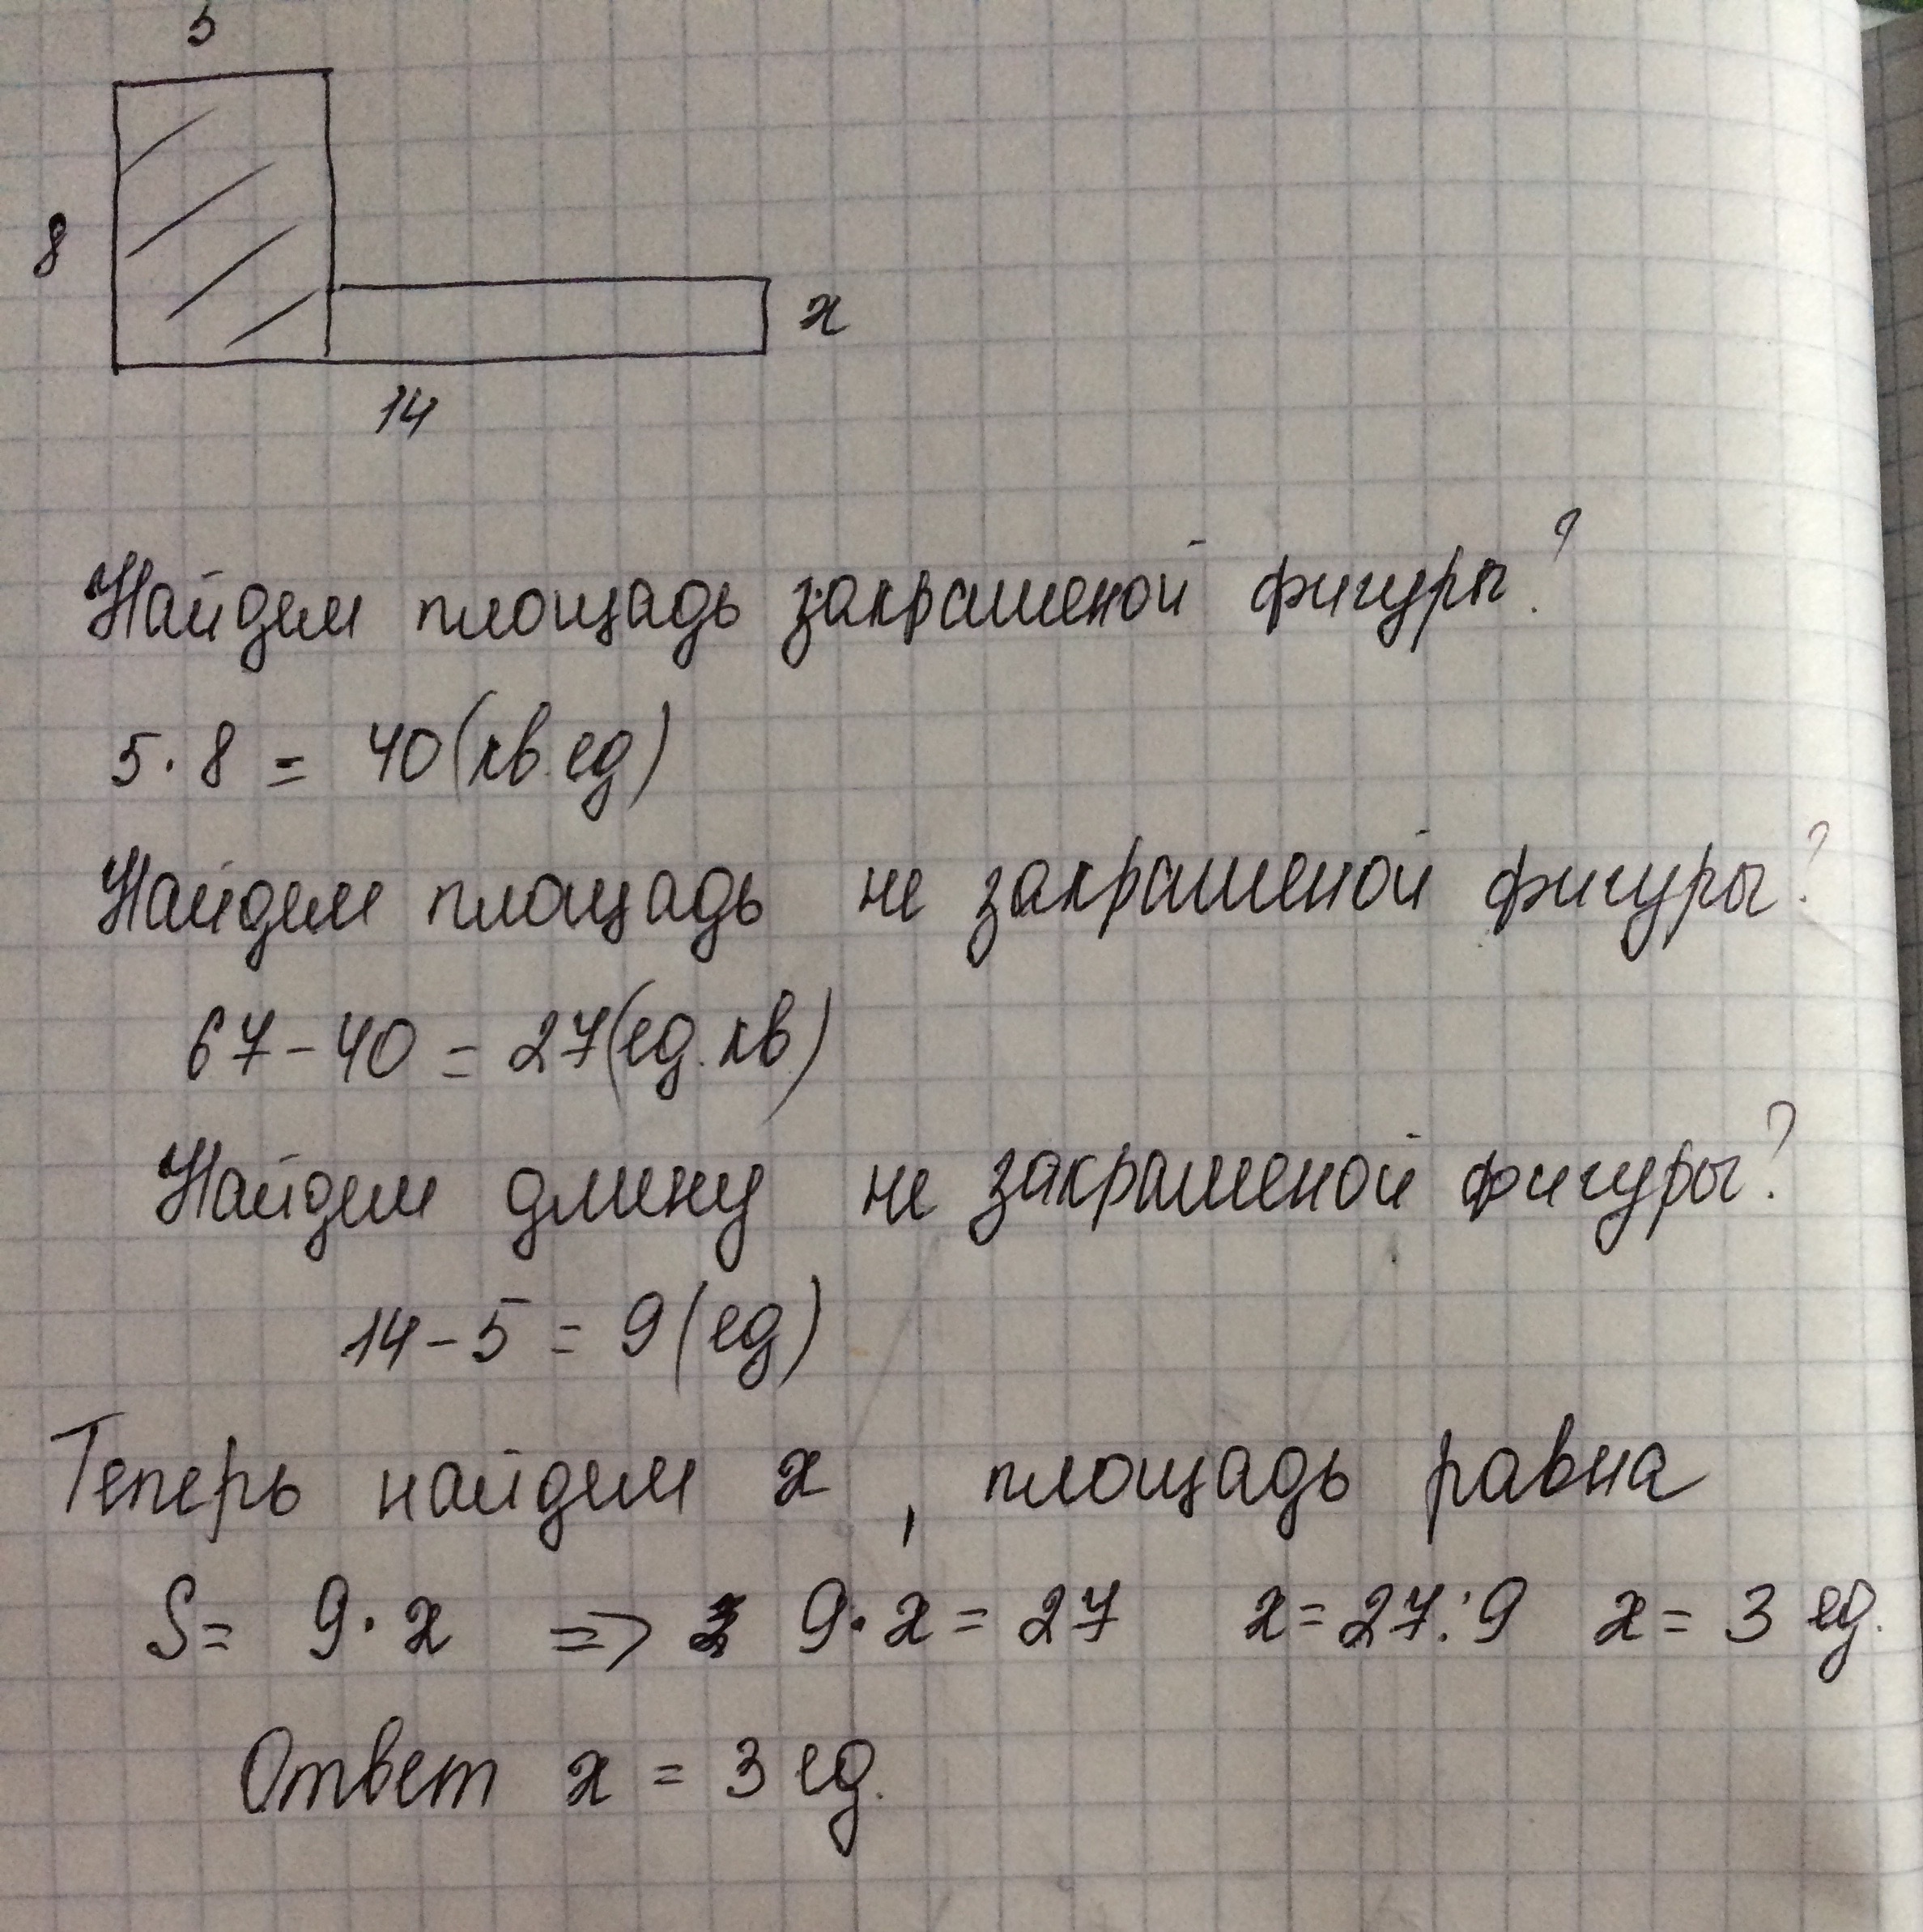 5
8
x
14
Найдем площадь закрашеной фигуры?
5·8 = 40(кв.ед)
Найдем площадь не закрашеной фигуры?
67-40 = 27(ед.кв)
Найдем длину не закрашеной фигуры?
14-5 = 9(ед)
Теперь найдем x, площадь равна
S= 9·x => 9·x=27 x=27:9 x=3 ед.
Ответ x = 3 ед.